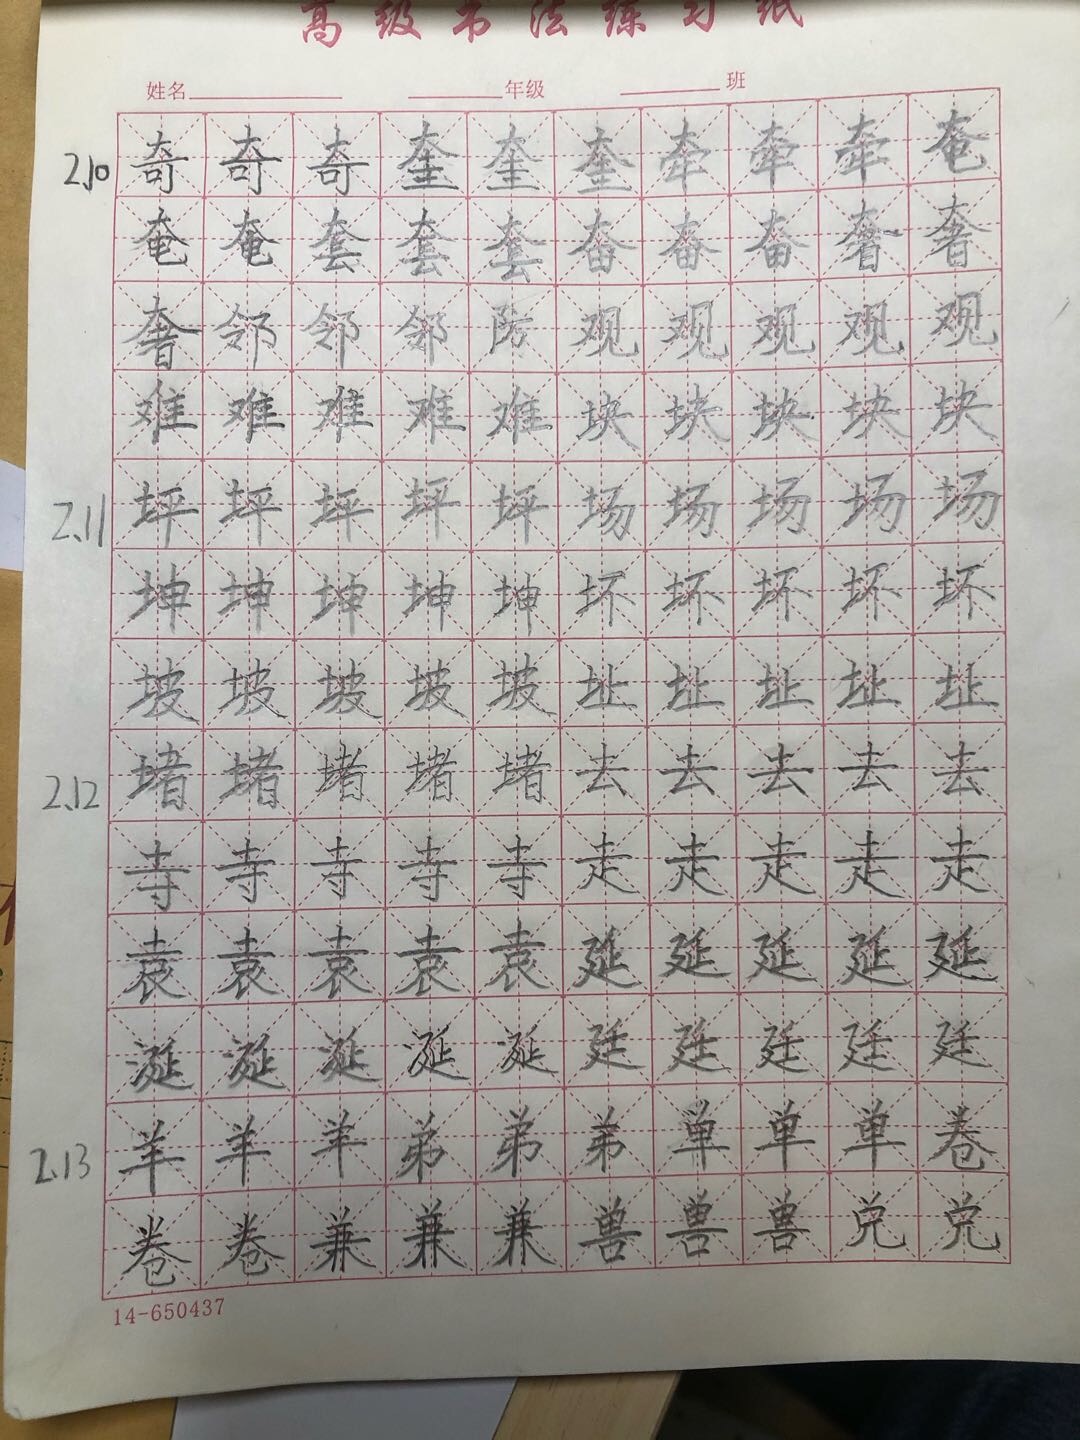 高级书法练习纸
姓名 年级 班
2.10 奇奇奇奎奎奎牵牵牵奄
奄奄套套套奋奋奋奢奢
奢邻邻邻防观观观观观
难难难难难块块块块块
2.11 坪坪坪坪坪场场场场场
坤坤坤坤坤坏坏坏坏坏
坡坡坡坡坡址址址址址
2.12 堵堵堵堵堵去去去去去
寺寺寺寺寺走走走走走
袁袁袁袁袁延延延延延
涎涎涎涎涎廷廷廷廷廷
2.13 羊羊羊弟弟弟单单单卷
卷卷兼兼兼兽兽兽兑兑
14-650437